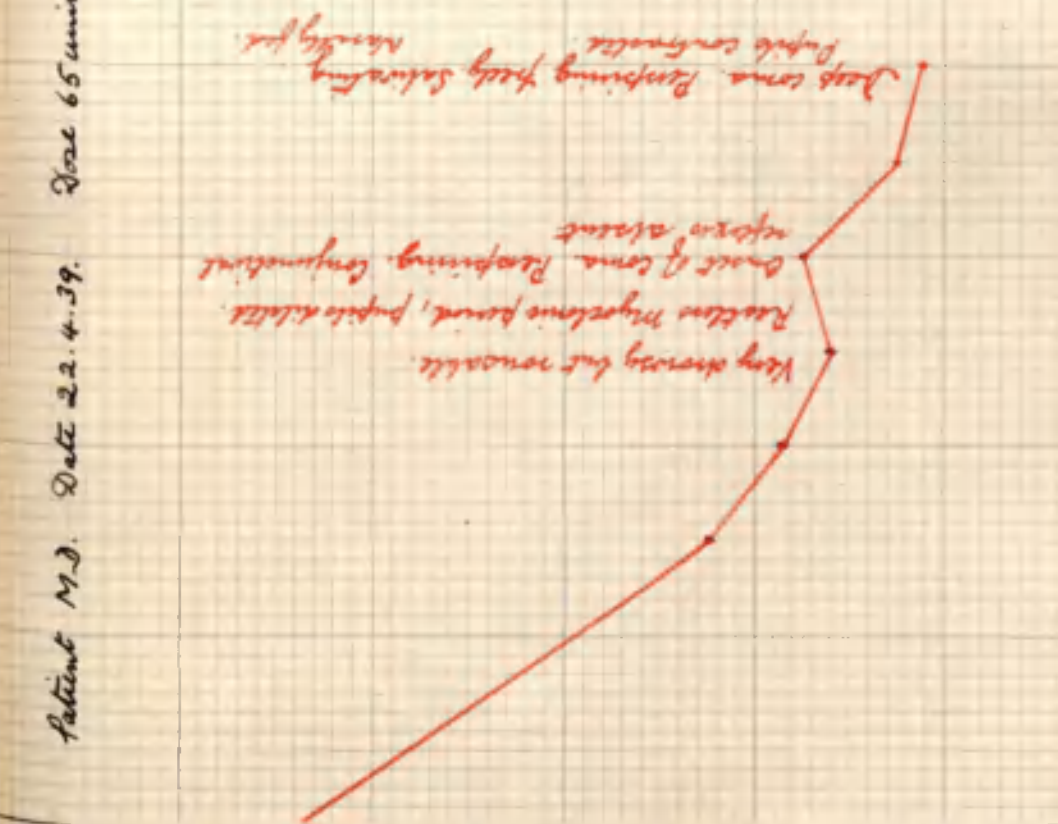 Patient M.D. Date 22.4.39. Dose 65 uni
Very drowsy but rousable.
Restless Myoclonic period, pupils dilated.
Onset of Coma. Perspiring. Conjunctival
reflexes absent
Deep coma. Perspiring freely Salivating
Pupils contracted nasally fed.